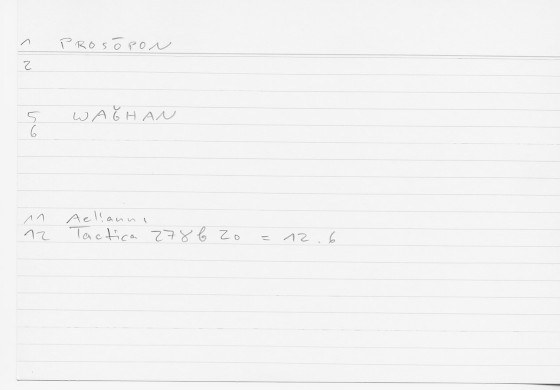 1 PROSŌPON
2
5 WAǦHAN
6
11 Aeliani
12 Tactica 278b 20 = 12.6